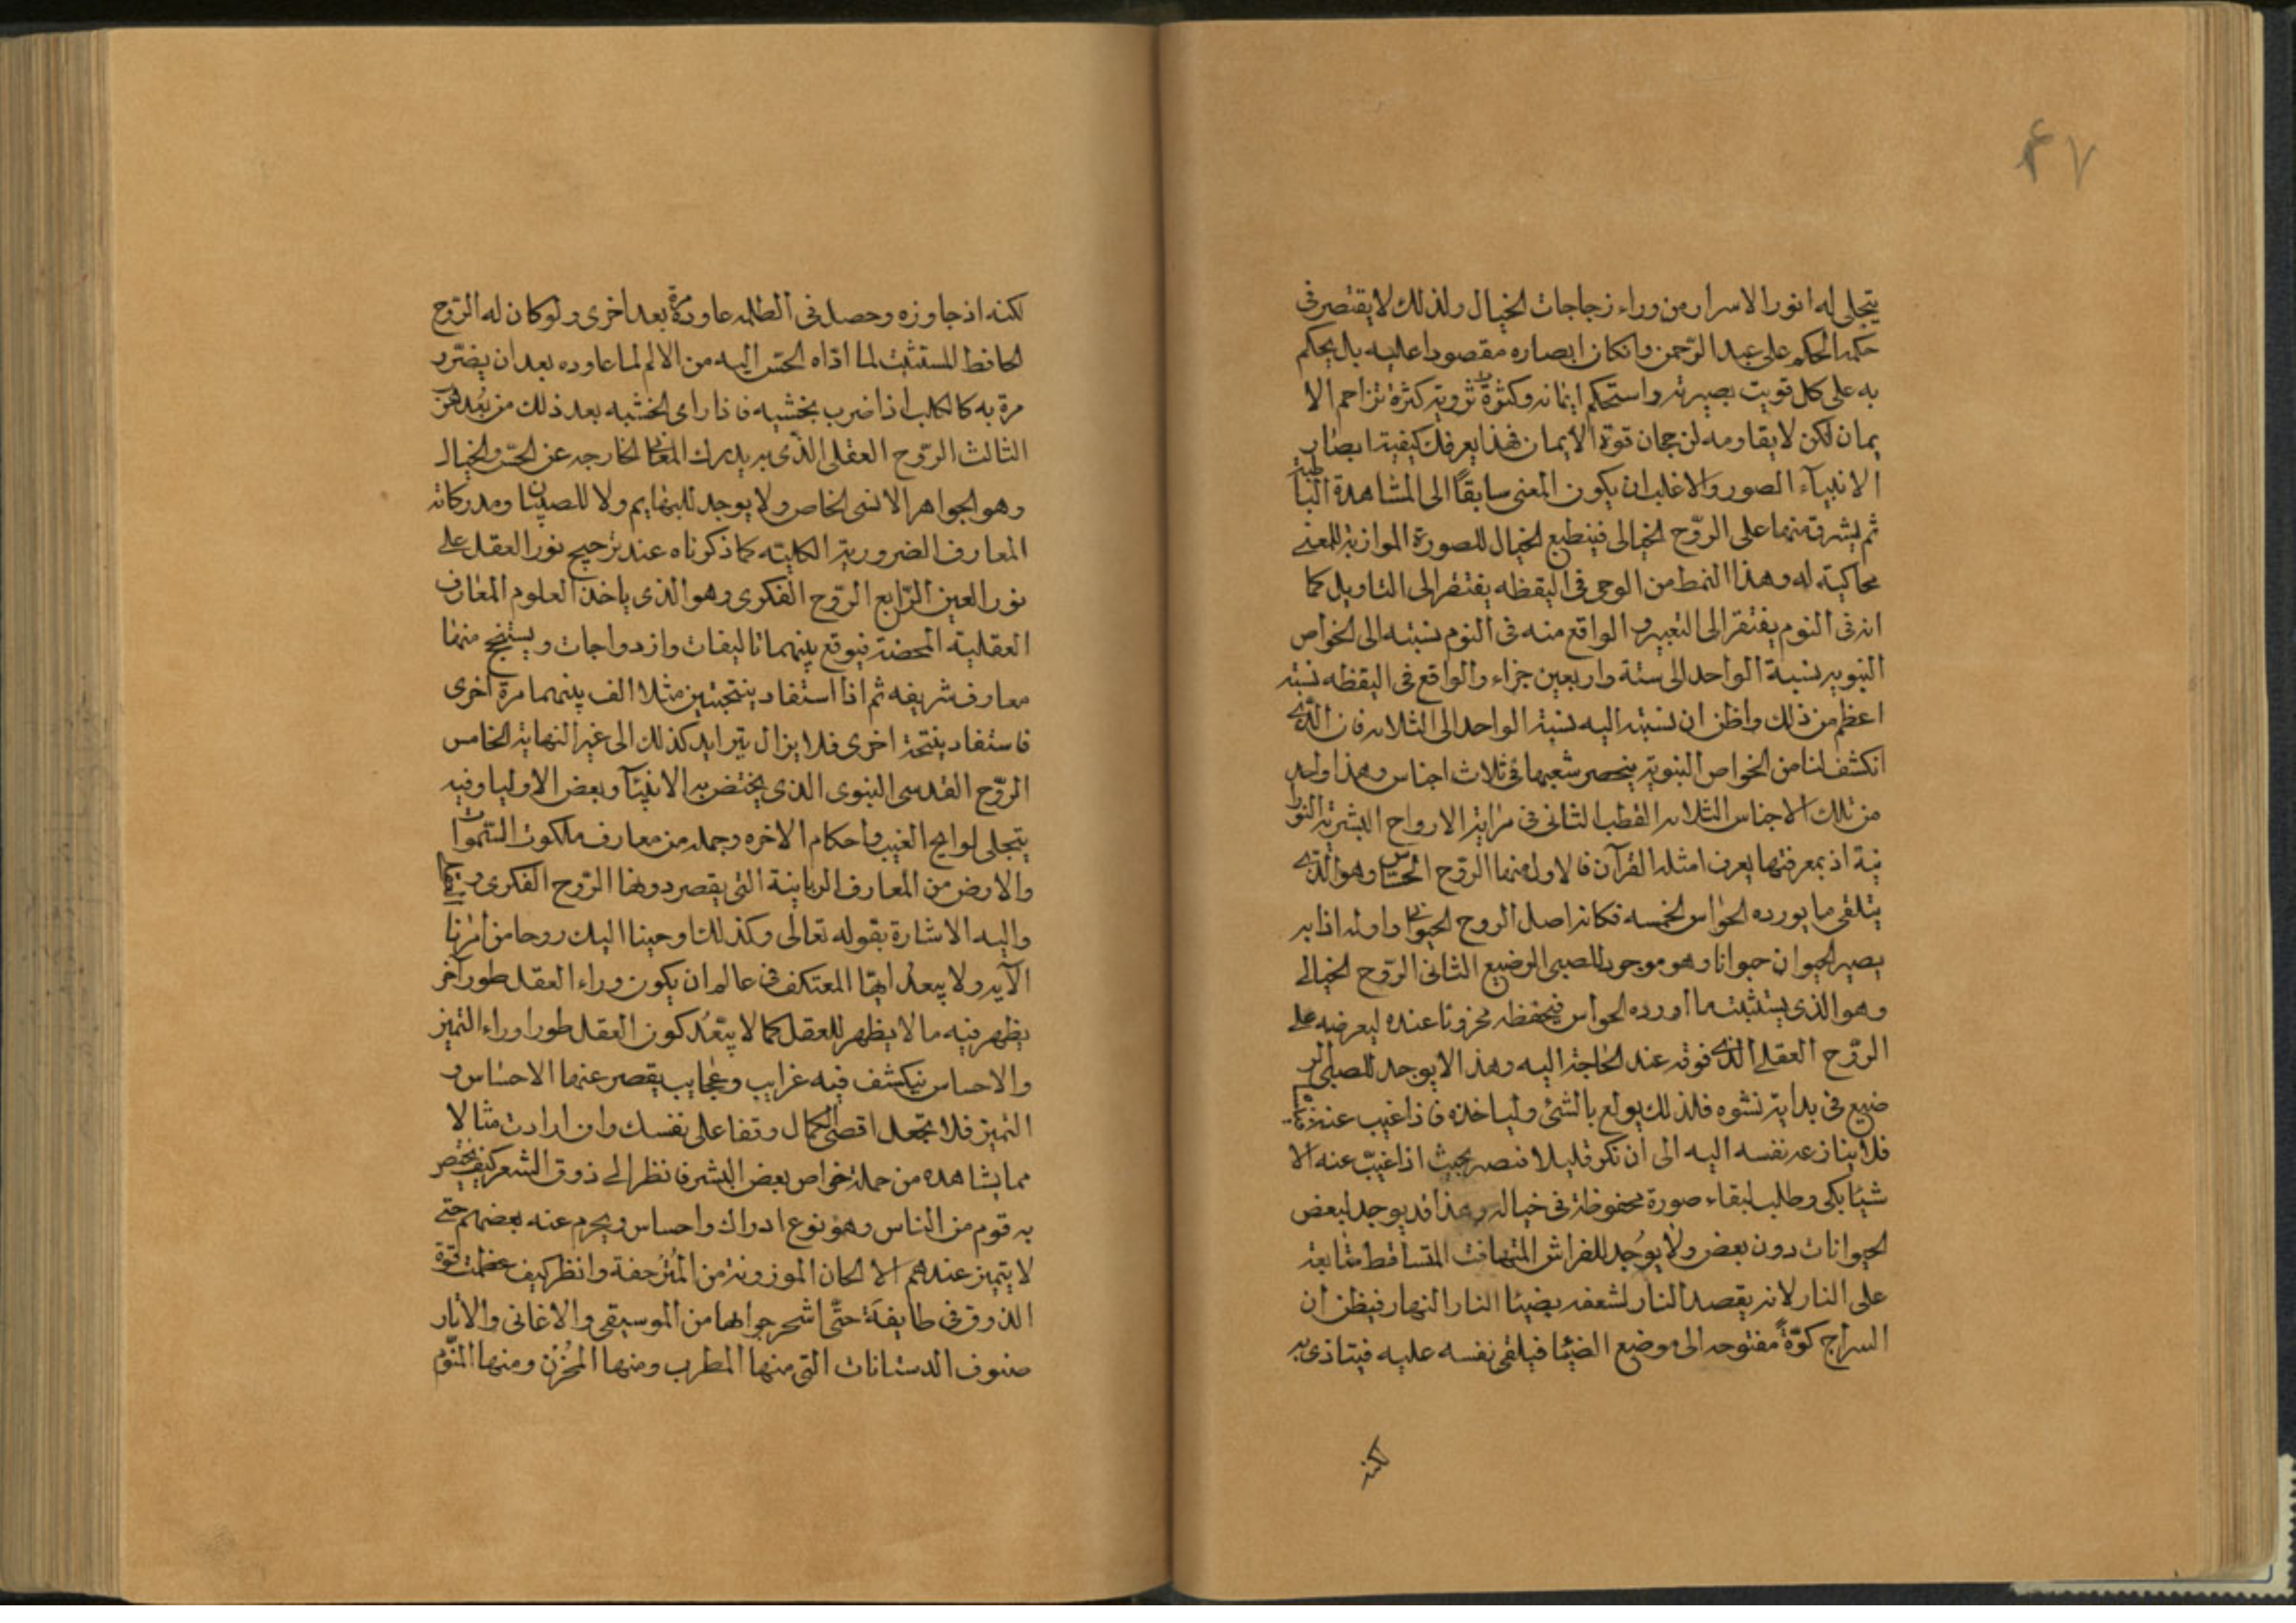 ٤٧
يتجلى له انور الاسرار من وراء زجاجات الخيال ولذلك لا يقتصر فى
حكمه الحكم على عبد الرحمن وانكان ابصاره مقصودا عليه بل يحكم
به على كل قويت بصيرته واستحكم ايمانه وكثرة ثروته كثرة تزاحم الا
يمان لكن لا يقاومه لن حمان قوة الايمان فهذا يعرفك كيفية ابصار
الانبيآء الصور والاغلب ان يكون المعنى سابقًا الى المشاهدة الباطنة
ثم يشرق منها على الروّح الخيالى فينطبع الخيال للصورة الموازنة للمعنى
محاكية له وهذا النمط من الوحى فى اليقظه يفتقر الى التاويل كما
انه فى النوم يفتقر الى التعبير و الواقع منه فى النوم نسبته الى الخواص
النبويه نسبة الواحد الى ستة واربعين جزاء والواقع فى اليقظه نسبته
اعظم من ذلك واظن ان نسبته اليه نسبة الواحد الى الثلاثه فان الذى
انكشف لنا من الخواص النبوية ينحصر شعبها فى ثلاث اجناس وهذا واحد
من تلك الاجناس الثلاثه القطب الثانى فى مراتبة الارواح البشرية النورا
نية اذ بمعرفتها يعرف امثله القرآن فالاول منها الروّح الحساس وهو الذى
يتلقى ما يورده الحواس الخمسه فكانه اصل الروح الحيوانى واوله اذا به
يصير الحيوان حيوانا وهو موجود للصبى الرضيع الثانى الروّح الخيالى
وهو الذى يستثبت ما اورده الحواس فيحفظه مخزونا عنده ليعرضه على
الروّح العقلى الذى فوقه عند الحاجة اليه وهذا لا يوجد للصبى الر
ضيع فى بداية نشوه فلذلك يولع بالشئ وليأخذه فاذا غيب عنه
فلا ينازعه نفسه اليه الى أن تكر قليلا فنصير بحيث اذا غيبّ عنه الا
شيئا بكى وطلب لبقاء صورة محفوظة فى خياله وهذا قد يوجد لبعض
الحيوانات دون بعض ولا يوُجد للفراش المتهافت المتساقط متابعة
على النار لانه يقصد النار لشعفه بضيئا النار النهار فيظن ان
السراج كوّةً مفتوحه الى موضع الضيئا فيلقى نفسه عليه فيتاذى به
لكنه
لكنه اذ جاوزه وحصل فى الظلمه عاوده مرّة بعد اخرى ولو كان له الروّح
الحافظ المستثبت لما ادّاه الحسّ اليه من الالم لما عاوده بعد ان يضرّر
مرة به كالكلب اذا ضرب بخشبه فاذا راى الخشبه بعد ذلك من بُعد هرب
الثالث الروّح العقلى الذّى به يدرك المعانى الخارجه عن الحسّ والخيال
وهو الجواهر الانسى الخاص ولا يوجد للبهايم ولا للصبيان ومدركاته
المعارف الضرورية الكلية كما ذكرناه عند ترجيح نور العقل على
نور العين الرّابع الروّح الفكرى وهو الذى ياخذ العلوم المعارف
العقلية المحضة فيوقع بينهما تاليفات وازدواجات ويستنتج منها
معارف شريفه ثم اذا استفاد ينتجتين مثلا الف بينهما مرة اخرى
فاستفاد ينتجة اخرى فلا يزال يتزايد كذلك الى غير النهاية الخامس
الروّح القدسى النبوى الذى يختص به الانبيآ وبعض الاوليا وفيه
يتجلى لوايح الغيب واحكام الاخره وجمله من معارف ملكوت السّموات
والارض من المعارف الربانية التى يقصر دونها الروّح الفكرى
واليه الاشارة بقوله تعالى وكذلك اوحينا اليك روحا من امرنا
الآيه ولا يبعد ايها المعتكف فى عالم ان يكون وراء العقل طور آخر
يظهر فيه ما لا يظهر للعقل كما لا يبّعُد كون العقل طورا وراء التميز
والاحساس نيكشف فيه غرايب وعجايب يقصر عنها الاحساس و
التميز فلا تجعل اقصى الكمال وقفا على نفسك وان ارادت مثالا
مما يشاهده من جملة خواص بعض البشر فانظر الى ذوق الشعر كيف يختص
به قوم من الناس وهو نوع ادراك واحساس ويحرم عنه بعضهم حتى
لا يتميز عندهم الا لحان الموزونة من المُتزحفة وانظر كيف عظمت قوة
الذوق فى طايفة حتّى اشحرجوا بها من الموسيقى والاغانى والاتار
صنوف الدستانات التى منها المطرب ومنها المُحزن ومنها المنوّم